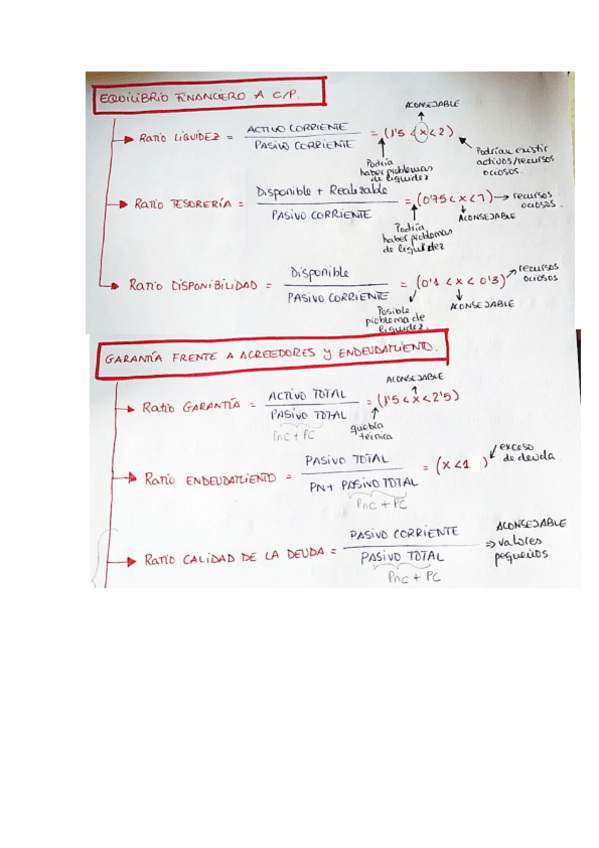 EQUILIBRIO FINANCIERO A C/P.
ACONSEJABLE
Ratio LIQUIDEZ = ACTIVO CORRIENTE / PASIVO CORRIENTE = (1'5 < x < 2)
Podría haber problemas de liquidez
Podrían existir activos/recursos ociosos.
Ratio TESORERÍA = Disponible + Realizable / PASIVO CORRIENTE = (0'75 < x < 1) → recursos ociosos.
ACONSEJABLE
Podría haber problemas de liquidez
Ratio DISPONIBILIDAD = Disponible / PASIVO CORRIENTE = (0'1 < x < 0'3) recursos ociosos
ACONSEJABLE
Posible problema de liquidez.
GARANTÍA FRENTE A ACREEDORES Y ENDEUDAMIENTO.
ACONSEJABLE
Ratio GARANTÍA = ACTIVO TOTAL / PASIVO TOTAL = (1'5 < x < 2'5)
PnC + PC
quiebra técnica
Ratio ENDEUDAMIENTO = PASIVO TOTAL / PN + PASIVO TOTAL = (x < 1 ) exceso de deuda.
PnC + PC
Ratio CALIDAD DE LA DEUDA = PASIVO CORRIENTE / PASIVO TOTAL ⇒ ACONSEJABLE valores pequeños
PnC + PC